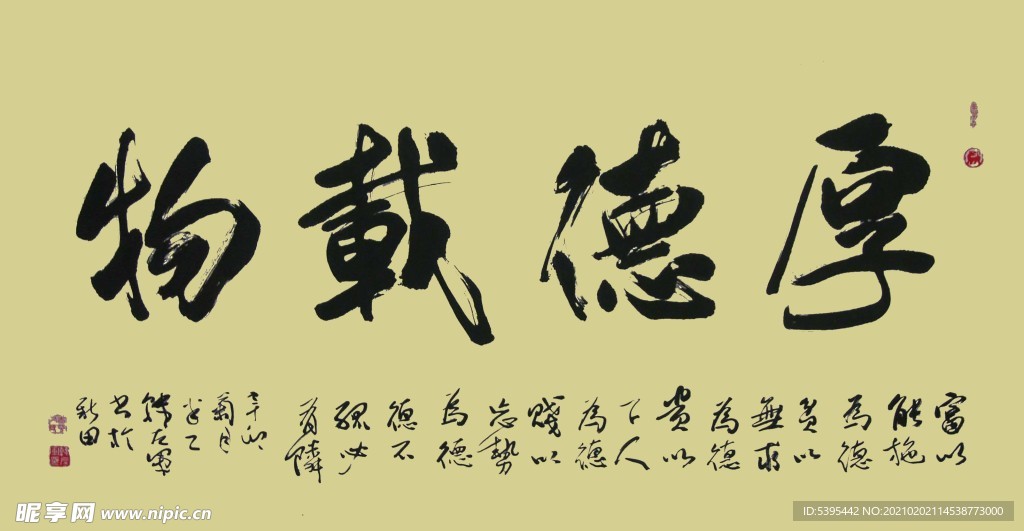 厚德載物
富以
能施
為德
貧以
無求
為德
貴以
下人
為德
賤以
忘勢
為德
德不
孤必
有隣
辛卯
菊月
書於
新田
昵享网 www.nipic.cn
ID:5395442 NO:20210202114538773000